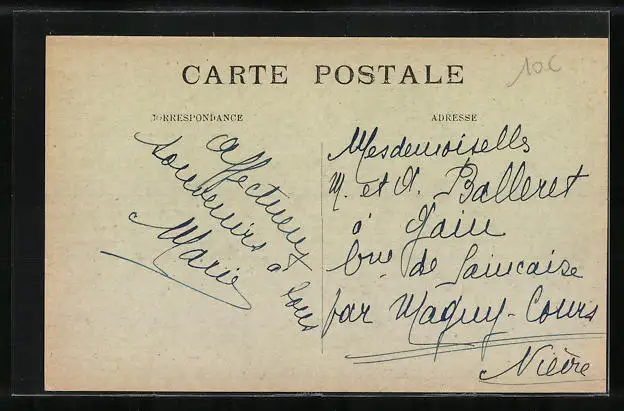 CARTE POSTALE
10c
CORRESPONDANCE
Affectueux
souvenirs à tous
Marie
ADRESSE
Mesdemoiselles
M. et A. Balleret
à Gain
Cne de Saincaize
par Magny-Cours
Nièvre